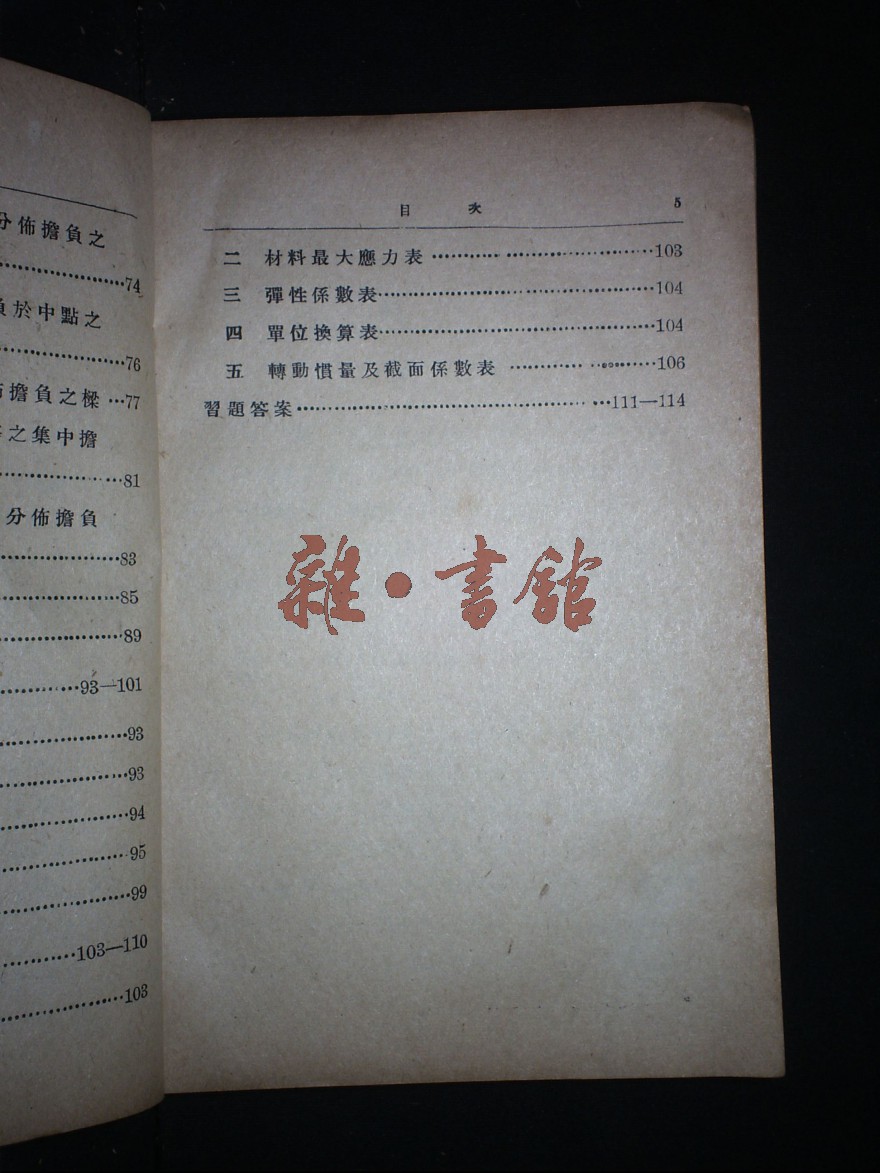 分佈擔負之
……74
負於中點之
……76
擔負之樑…77
之集中擔
……81
分佈擔負
……83
……85
……89
……93—101
……93
……93
……94
……95
……99
……103—110
……103
目 次 5
二 材料最大應力表……103
三 彈性係數表……104
四 單位換算表……104
五 轉動慣量及截面係數表……106
習題答案……111—114
雜·書館